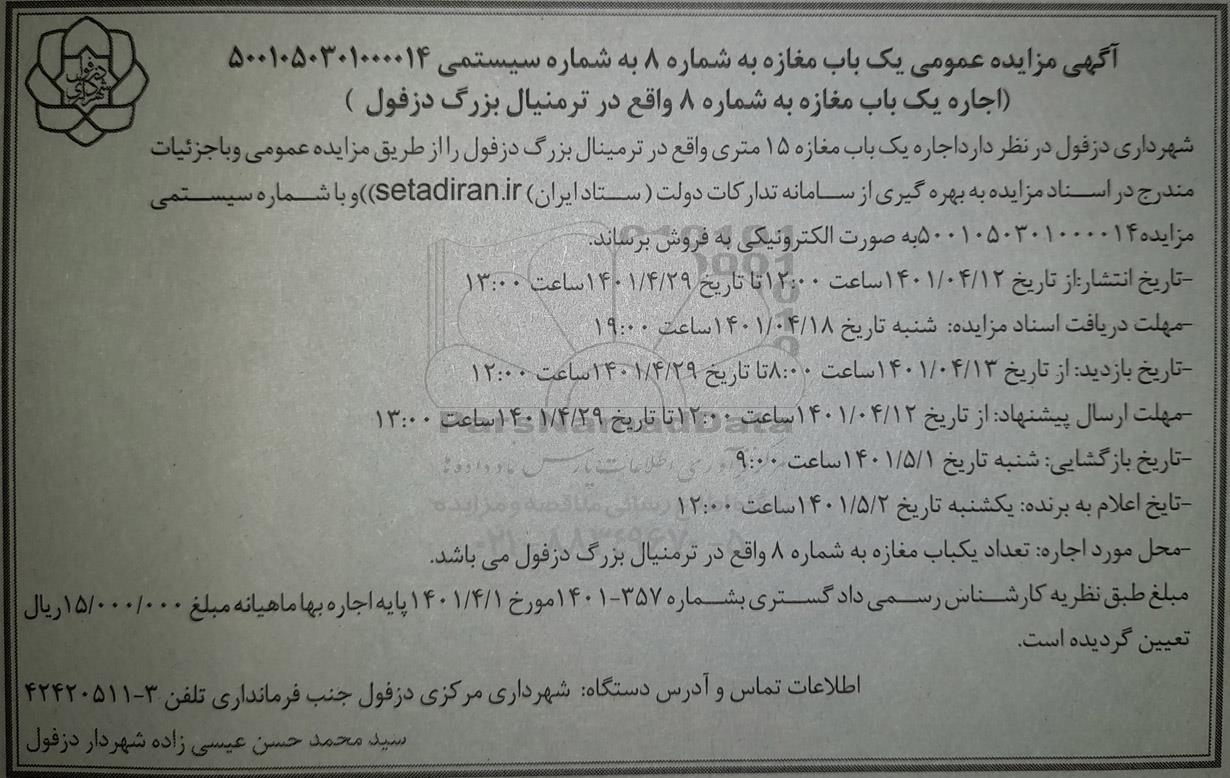 آگهی مزایده عمومی یک باب مغازه به شماره ۸ به شماره سیستمی ۵۰۰۱۰۵۰۳۰۱۰۰۰۰۱۴
(اجاره یک باب مغازه به شماره ۸ واقع در ترمنیال بزرگ دزفول )
شهرداری دزفول در نظر دارداجاره یک باب مغازه ۱۵ متری واقع در ترمینال بزرگ دزفول را از طریق مزایده عمومی وباجزئیات
مندرج در اسناد مزایده به بهره گیری از سامانه تدارکات دولت ( ستاد ایران) setadiran.ir))و با شماره سیستمی
مزایده۵۰۰۱۰۵۰۳۰۱۰۰۰۰۱۴به صورت الکترونیکی به فروش برساند.
-تاریخ انتشار:از تاریخ ۱۴۰۱/۰۴/۱۲ساعت ۱۲:۰۰تا تاریخ ۱۴۰۱/۴/۲۹ساعت ۱۳:۰۰
-مهلت دریافت اسناد مزایده: شنبه تاریخ ۱۴۰۱/۰۴/۱۸ساعت ۱۹:۰۰
-تاریخ بازدید: از تاریخ ۱۴۰۱/۰۴/۱۳ساعت ۸:۰۰تا تاریخ ۱۴۰۱/۴/۲۹ساعت ۱۲:۰۰
-مهلت ارسال پیشنهاد: از تاریخ ۱۴۰۱/۰۴/۱۲ساعت ۱۲:۰۰تا تاریخ ۱۴۰۱/۴/۲۹ساعت ۱۳:۰۰
-تاریخ بازگشایی: شنبه تاریخ ۱۴۰۱/۵/۱ساعت ۹:۰۰
-تایخ اعلام به برنده: یکشنبه تاریخ ۱۴۰۱/۵/۲ساعت ۱۲:۰۰
-محل مورد اجاره: تعداد یکباب مغازه به شماره ۸ واقع در ترمنیال بزرگ دزفول می باشد.
مبلغ طبق نظریه کارشناس رسمی داد گستری بشماره ۳۵۷-۱۴۰۱مورخ ۱۴۰۱/۴/۱پایه اجاره بها ماهیانه مبلغ ۱۵/۰۰۰/۰۰۰ریال
تعیین گردیده است.
اطلاعات تماس و آدرس دستگاه: شهرداری مرکزی دزفول جنب فرمانداری تلفن ۳-۴۲۴۲۰۵۱۱
سید محمد حسن عیسی زاده شهردار دزفول
ParsNamadData